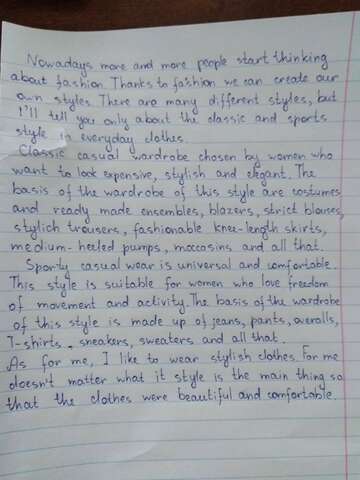 Nowadays more and more people start thinking
about fashion. Thanks to fashion we can create our
own styles. There are many different styles, but
I'll tell you only about the classic and sports
style in everyday clothes.
Classic casual wardrobe chosen by women who
want to look expensive, stylish and elegant. The
basis of the wardrobe of this style are costumes
and ready made ensembles, blazers, strict blouses,
stylich trousers, fashionable knee-length skirts,
medium-heeled pumps, moccosins and all that.
Sporty casual wear is universal and comfortable.
This style is suitable for women who love freedom
of movement and activity. The basis of the wardrobe
of this style is made up of jeans, pants, overalls,
T-shirts, sneakers, sweaters and all that.
As for me, I like to wear stylish clothes. For me
doesn't matter what it style is the main thing so
that the clothes were beautiful and comfortable.